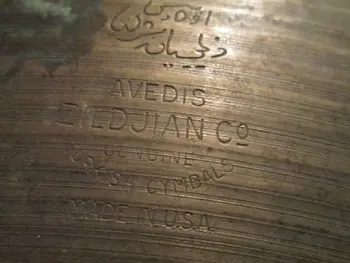 AVEDIS
ZILDJIAN Co
GENUINE
TURKISH CYMBALS
MADE IN U.S.A.